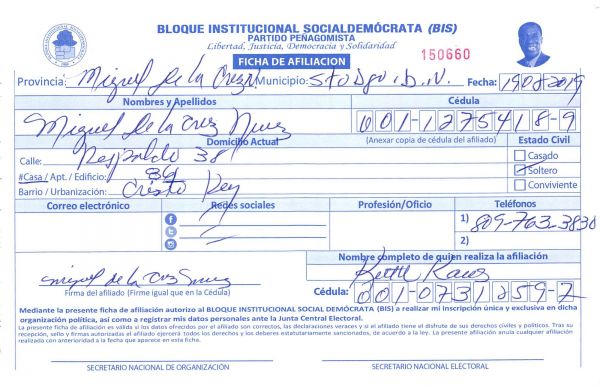 BLOQUE INSTITUCIONAL SOCIALDEMÓCRATA (BIS)
PARTIDO PEÑAGOMISTA
Libertad, Justicia, Democracia y Solidaridad
150660
FICHA DE AFILIACION
Provincia: Miguel De La Cruz Municipio: Sto Dgo. D.N. Fecha: 19 08 2019
Nombres y Apellidos Cédula
Miguel De la Cruz Nuñez 001-1275418-9
Domicilio Actual (Anexar copia de cédula del afiliado) Estado Civil
Calle: Respaldo 38 Casado
#Casa / Apt. / Edificio: 86 Soltero
Barrio / Urbanización: Cristo Rey Conviviente
Correo electrónico Redes sociales Profesión/Oficio Teléfonos
1) 809-763-3830
2)
Nombre completo de quien realiza la afiliación
miguel de la Cruz
Firma del afiliado (Firme igual que en la Cédula) Cédula: 001-0731259-7
Mediante la presente ficha de afiliación autorizo al BLOQUE INSTITUCIONAL SOCIAL DEMÓCRATA (BIS) a realizar mi inscripción única y exclusiva en dicha
organización política, así como a registrar mis datos personales ante la Junta Central Electoral.
La presente ficha de afiliación es válida si los datos ofrecidos por el afiliado son correctos, las declaraciones veraces y si el afiliado tiene el disfrute de sus derechos civiles y políticos. Tras su
recepción, sello y firmas autorizadas el afiliado ejercerá todos los derechos y los deberes estatutariamente sancionados, de acuerdo a la ley. La presente afiliación anula cualquier afiliación
realizada con anterioridad a la fecha que aparece en esta ficha.
SECRETARIO NACIONAL DE ORGANIZACIÓN SECRETARIO NACIONAL ELECTORAL